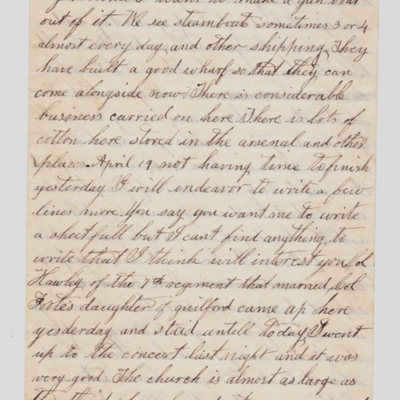 out of it. We see steamboat sometimes 3 or 4
almost every day and other shipping They
have built a good wharf so that they can
come alongside now There is considerable
business carried on here There is lots of
cotton here stored in the arsenal and other
places April 19 not having time to finish
yesterday I will endeavor to write a few
lines more. You say you want me to write
a sheet full but I cant find anything to
write that I think will interest you Col
Hawley of the 7th regment that married Col
Footes daughter of guilford came up here
yesderday and staid untill today I went
up to the concert last night and it was
very good The church is almost as large as